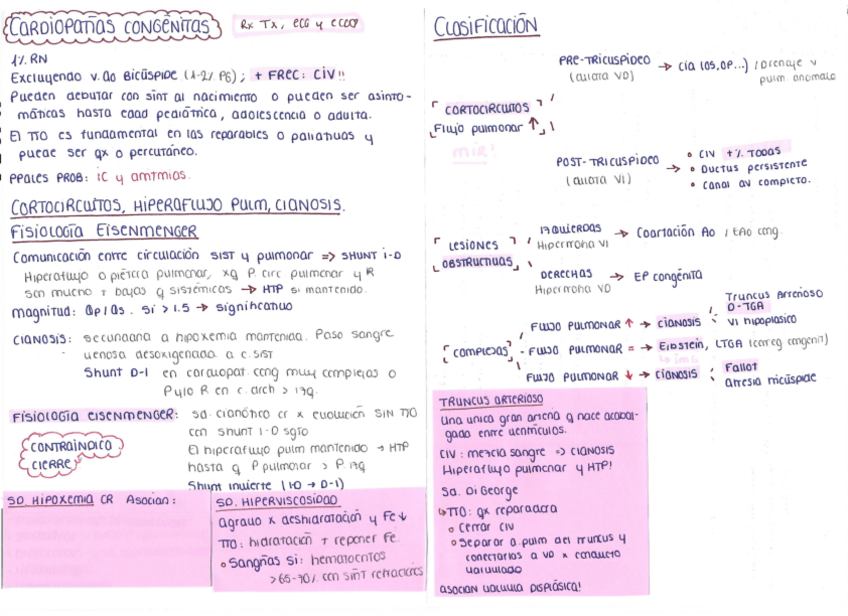 CARDIOPATÍAS CONGÉNITAS
Rx Tx, ECG y ECOO
1% RN
Excluyendo v. Ao Bicúspide (1-2% PG); + FREC: CIV!!
Pueden debutar con sint al nacimiento o pueden ser asinto-
máticas hasta edad pediátrica, adolescencia o adulta.
El TTO es fundamental en las reparables o paliativas y
puede ser qx o percutáneo.
PPALES PROB: IC y arritmias.
CORTOCIRCUITOS, HIPERAFLUJO PULM, CIANOSIS.
FISIOLOGÍA EISENMENGER
Comunicación entre circulación SIST y pulmonar => SHUNT I-D
Hiperaflujo o plétora pulmonar, xq P. circ pulmonar y R
son mucho + bajas q sistémicas → HTP si mantenido.
magnitud: Qp/Qs. Si > 1.5 → significativo
CIANOSIS: secundaria a hipoxemia mantenida. Paso sangre
venosa desoxigenada a c. SIST
Shunt D-I en cardiopat. cong muy complejas o
P y/o R en c. drch > izq.
FISIOLOGÍA EISENMENGER: sd. cianótico cr x evolución SIN TTO
con shunt I-D sgto
El hiperaflujo pulm mantenido → HTP
hasta q P pulmonar > P. izq
Shunt invierte (I-D → D-I)
CONTRAINDICO
CIERRE
SD HIPOXEMIA CR Asocian:
SD. HIPERVISCOSIDAD
Agravo x deshidratación y Fe↓
TTO: hidratación + reponer Fe.
Sangrías si: hematocritos
>65-70% con sínt refractarios
CLASIFICACIÓN
CORTOCIRCUITOS
Flujo pulmonar ↑
MIR!
PRE-TRICUSPÍDEO → CIA (OS, OP...) / Drenaje v
(dilata VD) pulm. anómalo
POST-TRICUSPÍDEO → CIV +% TODAS
(dilata VI) Ductus persistente
Canal AV completo.
LESIONES
OBSTRUCTIVAS
IZQUIERDAS → Coartación Ao / EAo cong.
Hipertrofia VI
DERECHAS → EP congénita
Hipertrofia VD
COMPLEJAS
FLUJO PULMONAR ↑ → CIANOSIS Truncus Arterioso
D-TGA
VI hipoplásico
FLUJO PULMONAR = → Ebstein, LTGA (correg congenit)
FLUJO PULMONAR ↓ → CIANOSIS Fallot
Atresia tricúspide
TRUNCUS ARTERIOSO
Una única gran arteria q nace acabal-
gada entre ventrículos.
CIV: mezcla sangre => CIANOSIS
Hiperaflujo pulmonar y HTP!
Sd. Di George
TTO: qx reparadora
Cerrar CIV
Separar a. pulm del truncus y
conectarlas a VD x conducto
valvulado
ASOCIAN VÁLVULA DISPLÁSICA!